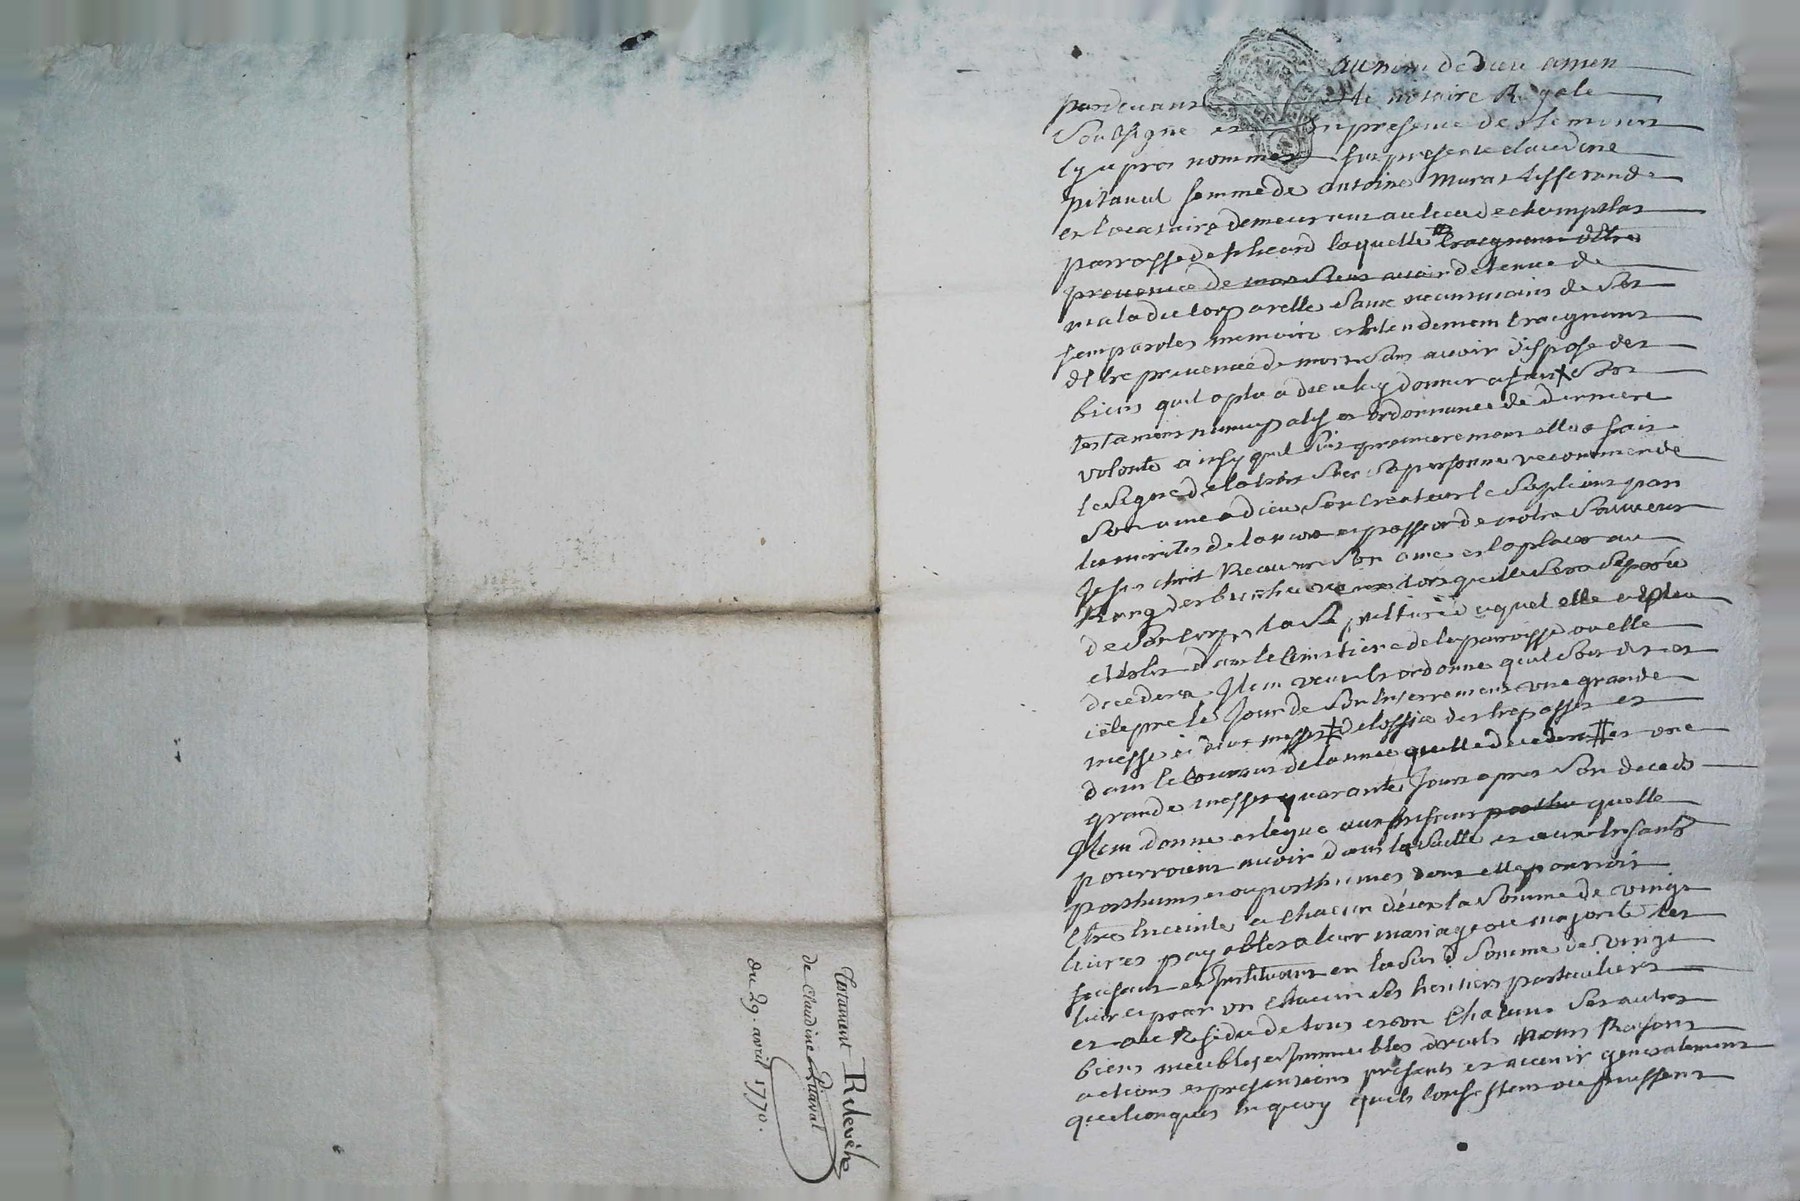 au nom de dieu amen
pardevant le notaire Royale
Soussigné et en presence des temoins
cy apres nommes fut presente claudine
pitaval femme de antoine murat tisserand
et locataire demeurant au lieu de champblas
parroisse de laquelle craignant détre
prevenue de mort sans avoir detenue de
maladie corporelle sans neanmoins de ses
sens paroles memoire et entendement craignant
détre prevenue de mort sans avoir disposé des
biens quil a plu a dieu luy donner a fait son
testament nuncupatif et ordonnance de derniere
volonté ainsy quil suit premierement elle a fait
le signe de la croix sur sa personne recommandé
son ame a dieu son createur le supliant par
les merites de la mort et passion de notre Sauveur
Jesus christ recevoir son ame et la placer au
rang des bienheureux lors quelle sera separée
de son corps la sepulture duquel elle a
dans le cimetiere de la parroisse ou elle
decedera Item veut et ordonne quil soit dit et
celepre le Jour de son enterrement une grande
messe et deux messes de loffice des trepasses et
dans le courant de lannée quelle decedera et une
grande messe quarante Jours apres son deceds
Item donne et legue aux posthu quelle
pourroient avoir dans la suitte et aux enfants
posthume ou posthumes dont elle pourroit
étre enceinte a chacun déux la somme de vingt
livres payables a leur mariage ou majorité les
faisant et instituant en la susd somme de vingt
livres pour un chacun ses heritiers particuliers
et au Residu de tous et un chacuns ses autres
biens meubles et immeubles droits noms Raisons
actions et pretentions presents et avenir generalement
quelconques en quoy quils consistent ou puissent
Testament
de Claudine Pitaval
du 29. avril 1770.